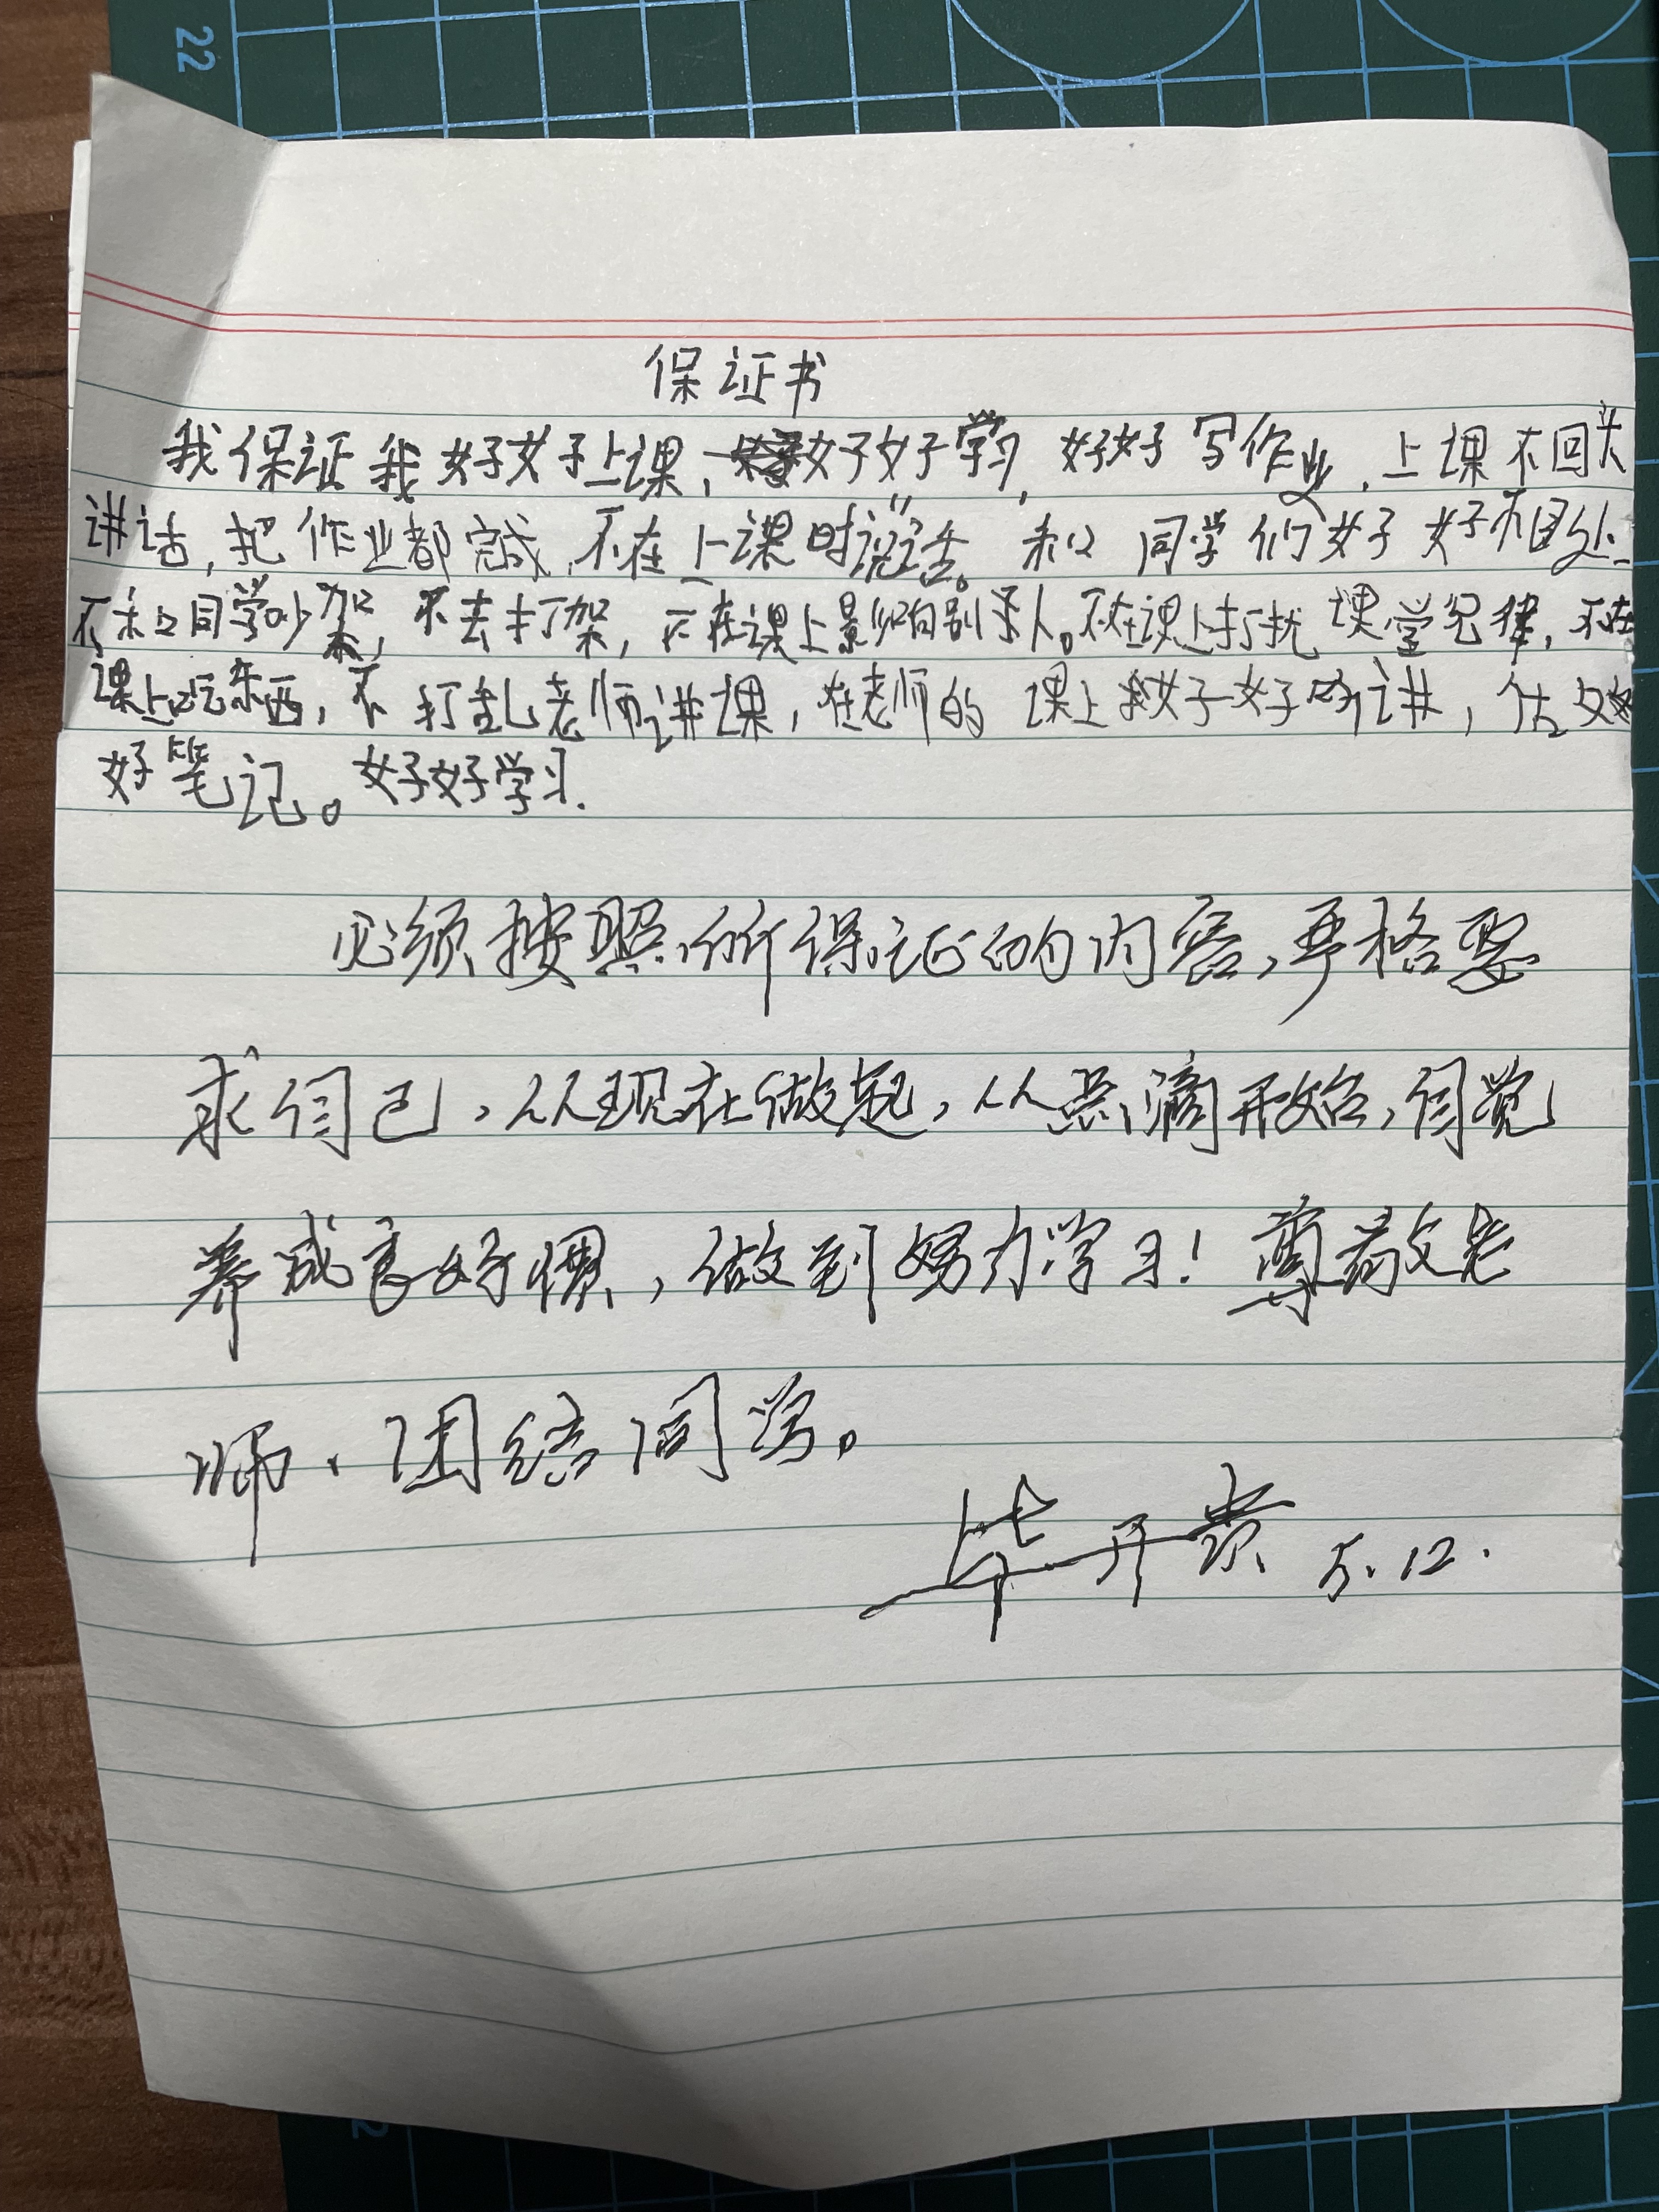 22
保证书
我保证我好好上课，好好学习，好好写作业，上课不回头
讲话，把作业都完成，不在上课时说话。和同学们好好相处
不和同学吵架，不去打架，不在课上影响别人。不在课上打扰课堂纪律，不在
课上玩东西，不打乱老师讲课，在老师的课上好好听讲，做
好笔记。好好学习.
必须按照所保证的内容，严格要
求自己，从现在做起，从点滴开始，自觉
养成良好惯，做到努力学习！尊敬老
师、团结同学。
毕开贵 5.12.